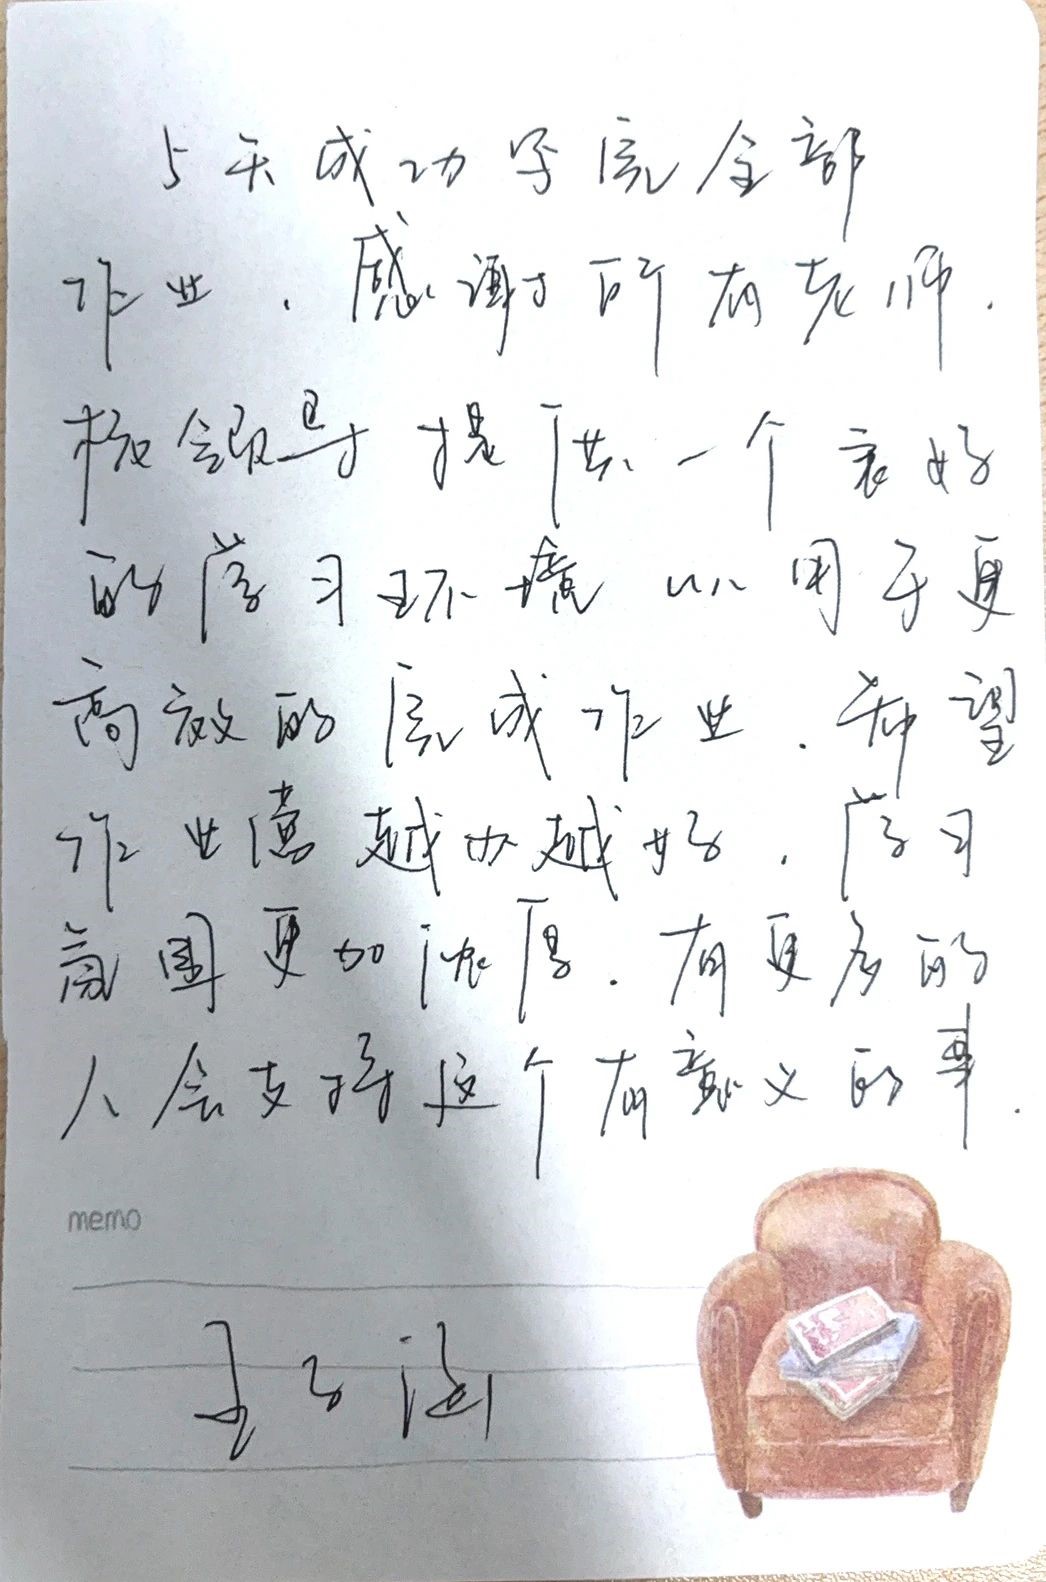 5天成功写完全部
作业.感谢所有老师.
校领导提供一个良好
的学习环境以用于更
高效的完成作业.希望
作业营越办越好.学习
氛围更加浓厚.有更多的
人会支持这个有意义的事.
memo
王子涵